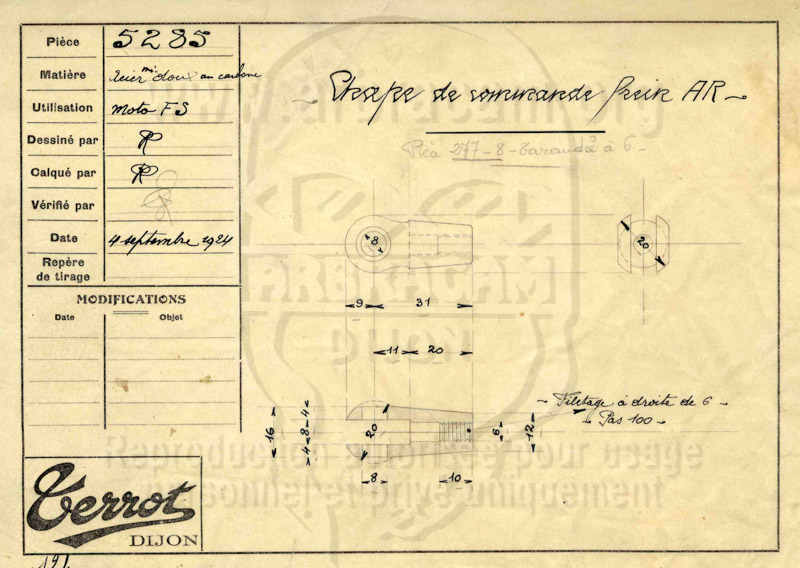 Pièce 5285
Matière Acier mi doux au carbone
Utilisation Moto FS
Dessiné par R
Calqué par R
Vérifié par
Date 4 septembre 1924
Repère
de tirage
MODIFICATIONS
Date Objet
Terrot
DIJON
Chape de commande frein AR
Pièce 277-8- Taraudé à 6
8
20
9 31
11 20
16
4-8-4
20
6
12
8 10
Filetage à droite de 6
Pas 100
www.arbracam.org
ARBRACAM
DIJON
Reproduction autorisée pour usage
personnel et privé uniquement